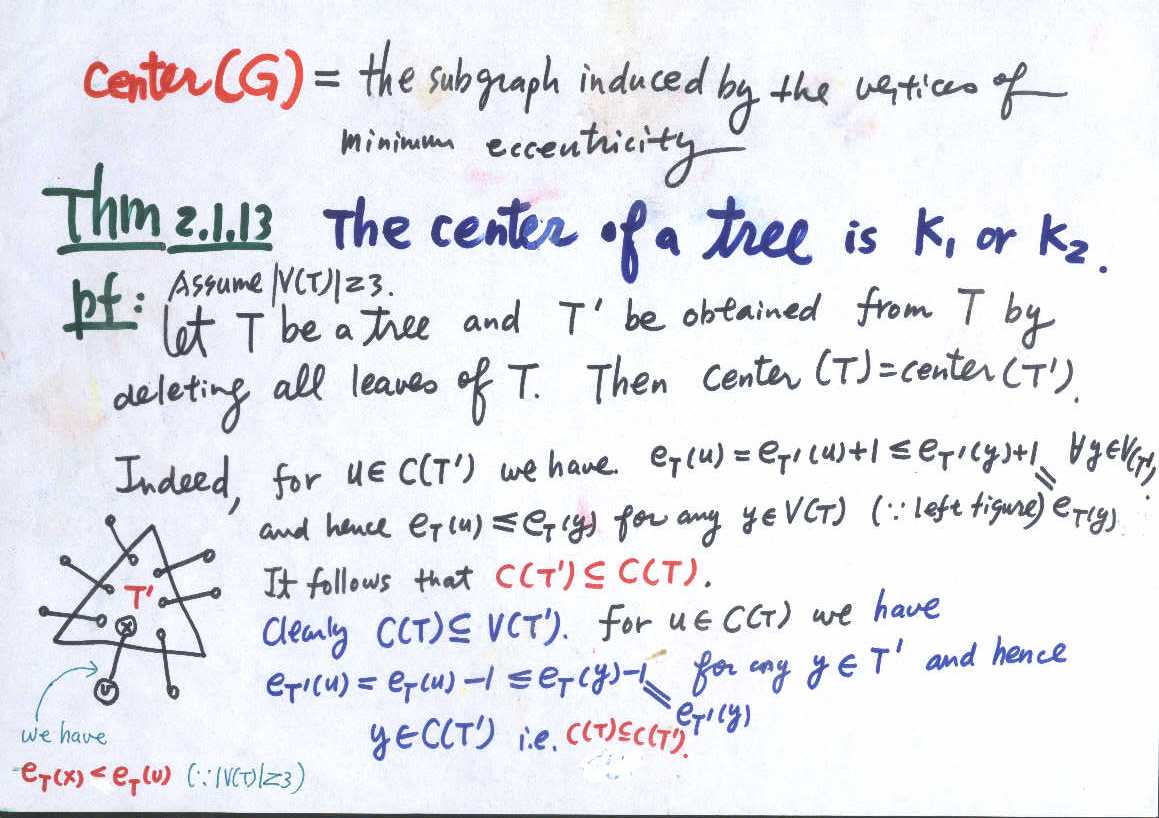 Center(G) = the subgraph induced by the vertices of
minimum eccentricity
Thm 2.1.13 The center of a tree is K₁ or K₂.
pf: Assume |V(T)|≥3.
Let T be a tree and T' be obtained from T by
deleting all leaves of T. Then center(T)=center(T').
Indeed, for u∈C(T') we have e_T(u)=e_T'(u)+1≤e_T'(y)+1 ∀y∈V(T'),
and hence e_T(u)≤e_T(y) for any y∈V(T) (∵left figure) = e_T(y)
It follows that C(T')⊆C(T).
Clearly C(T)⊆V(T'). For u∈C(T) we have
e_T'(u)=e_T(u)-1≤e_T(y)-1 for any y∈T' and hence
= e_T'(y)
y∈C(T') i.e. C(T)⊆C(T').
T'
x
v
we have
e_T(x)<e_T(v) (∵|V(T)|≥3)